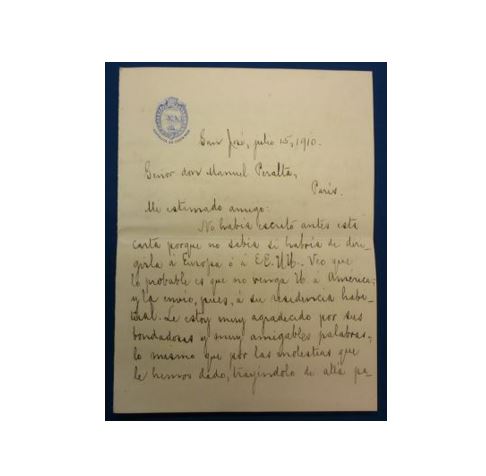 San José, julio 15, 1910.
Señor don Manuel Peralta,
París.
Me estimado amigo:
No había escrito antes esta
carta porque no sabía si habría de diri-
girla á Europa ó á EE. UU. Veo que
lo probable es que no venga U. á América;
y la envío, pues, á su residencia habi-
tual. Le estoy muy agradecido por sus
bondadosas y muy amigables palabras,
lo mismo que por las molestias que
le hemos dado, trayéndolo de allá pa-